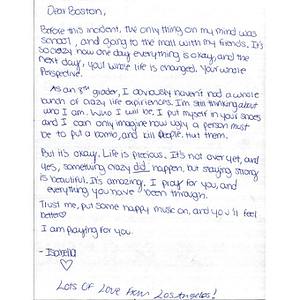 Dear Boston,
Before this incident, the only thing on my mind was
school, and going to the mall with my friends. It's
so crazy how one day everything is okay, and the
next day, your whole life is changed. Your whole
Perspective.
As an 8th grader, I obviously haven't had a whole
bunch of crazy life experiences. I'm still thinking about
who I am. Who I will be, I put myself in your shoes
and I can only imagine how ugly a person must
be to put a bomb, and kill people. Hurt them.
But it's okay. Life is precious. It's not over yet, and
yes, something crazy did happen, but staying strong
is beautiful. It's amazing. I pray for you, and
everything you have been through.
Trust me, put some happy music on, and you'll feel
better
I am praying for you.
- Isabella
Lots of Love from Los Angeles!